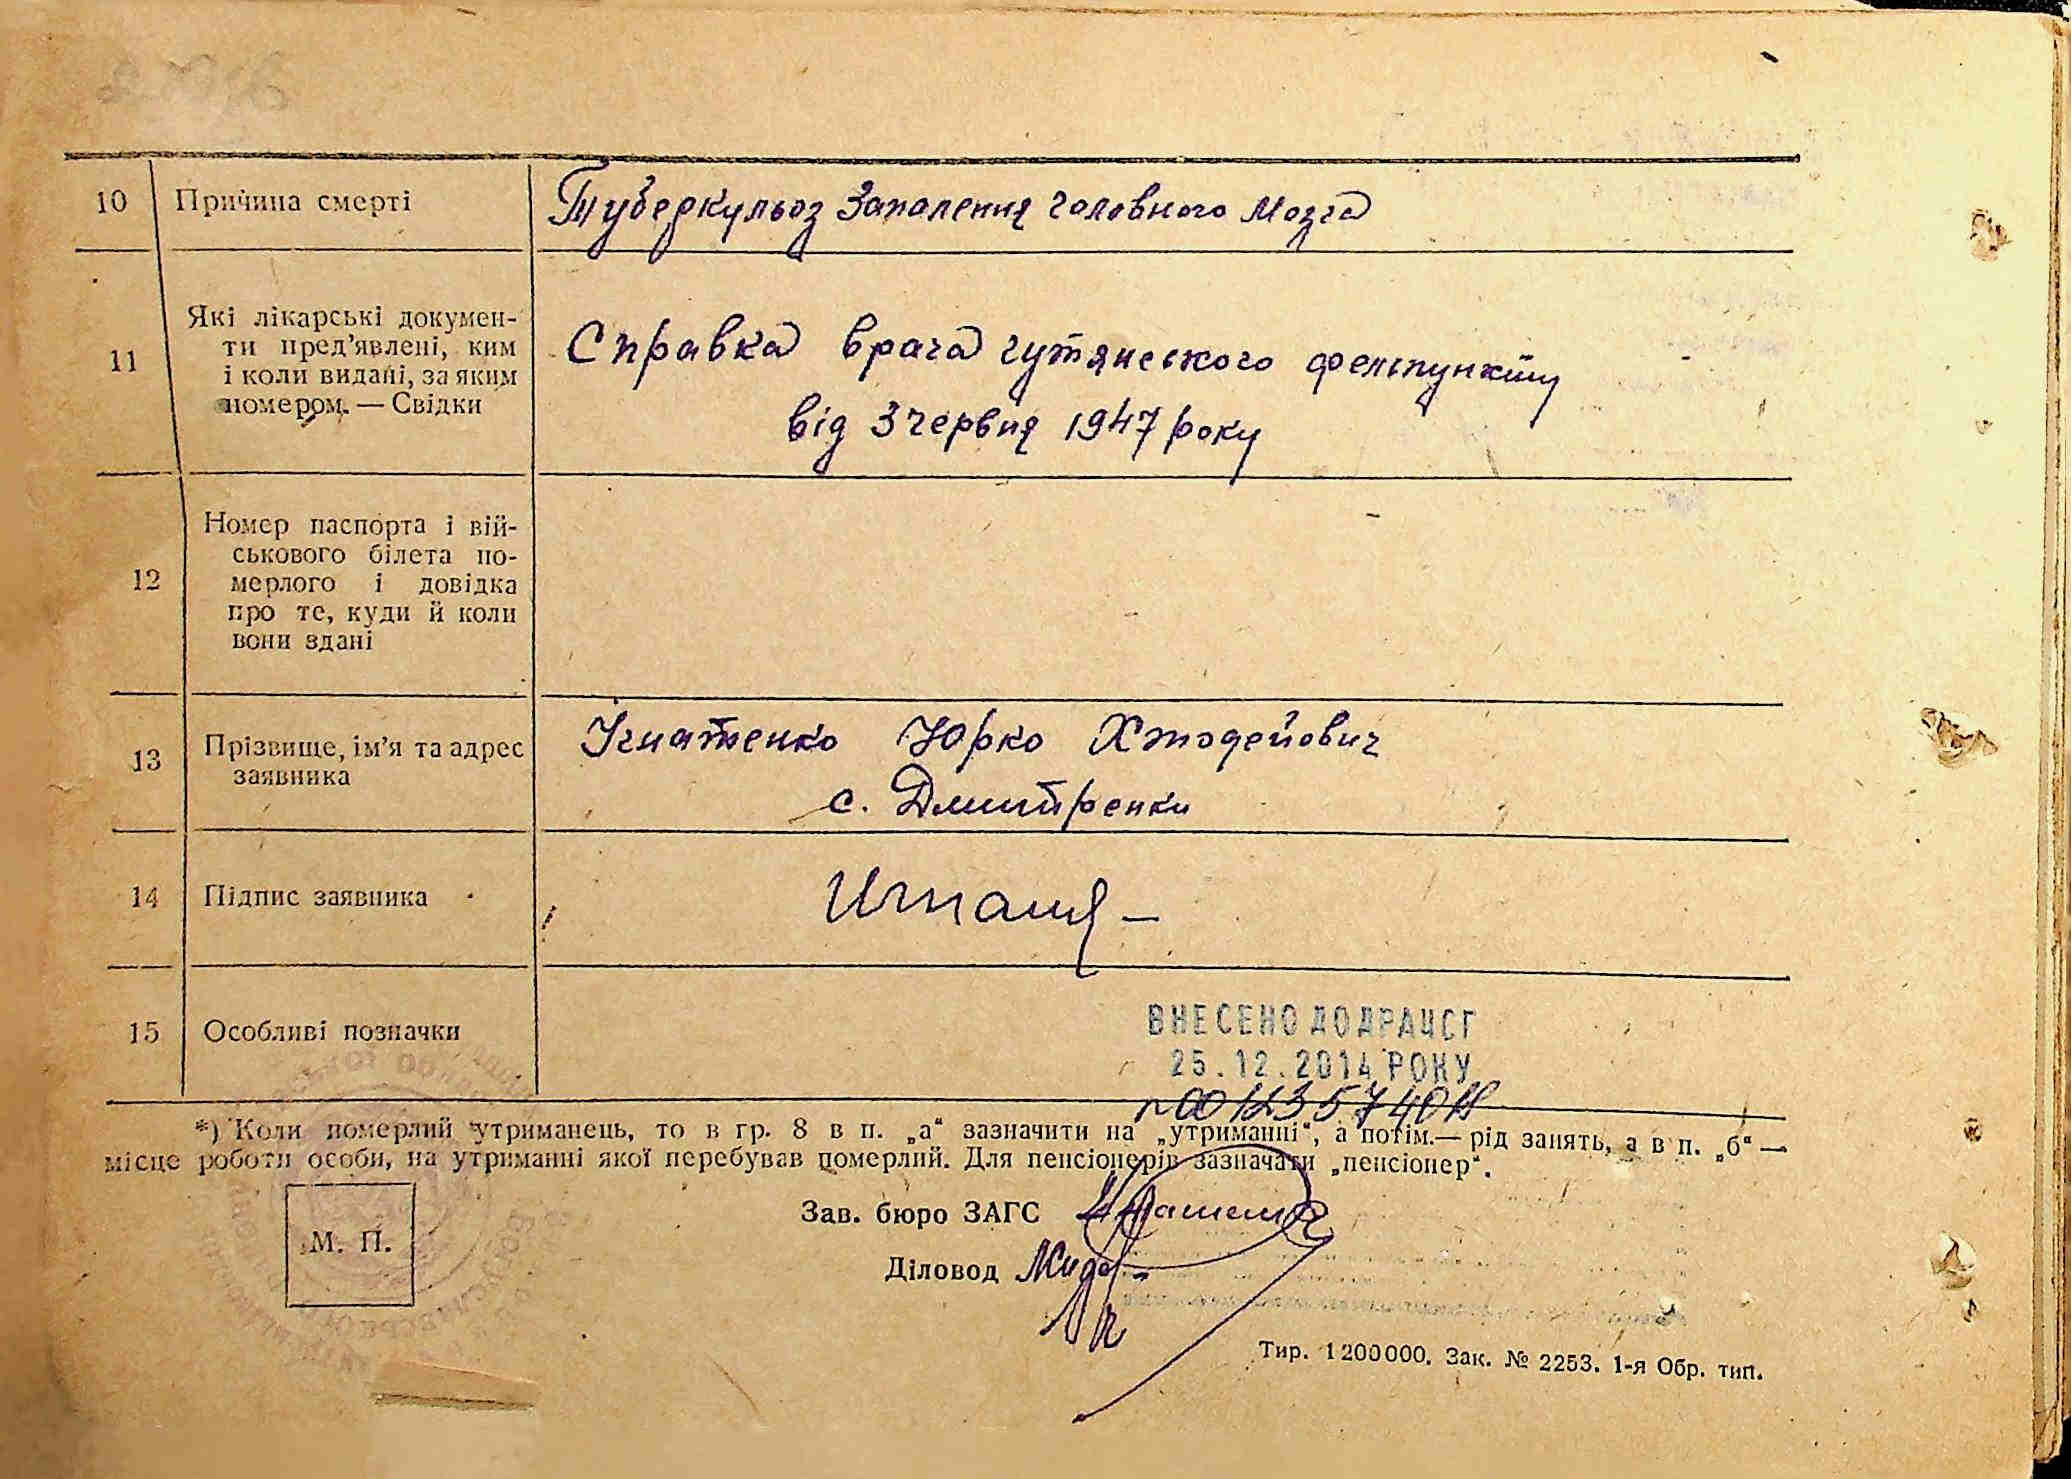 10 Причина смерті Туберкульоз Запалення головного мозга
11 Які лікарські докумен-
ти пред'явлені, ким
і коли видані, за яким
номером. — Свідки
Справка врача гутянского фельпункту
від 3 червня 1947 року
12 Номер паспорта і вій-
ськового білета по-
мерлого і довідка
про те, куди й коли
вони здані
13 Прізвище, ім'я та адрес
заявника
Ігнатенко Юрко
с. Дмитренки
14 Підпис заявника
15 Особливі позначки
ВНЕСЕНО ДО ДРАЦСГ
25.12.2014 РОКУ
*) Коли померлий утриманець, то в гр. 8 в п. „а“ зазначити на „утриманні“, а потім.— рід занять, а в п. „б“ —
місце роботи особи, на утриманні якої перебував померлий. Для пенсіонерів зазначати „пенсіонер“.
Зав. бюро ЗАГС
М. П.
Діловод
Тир. 1200000. Зак. № 2253. 1-я Обр. тип.